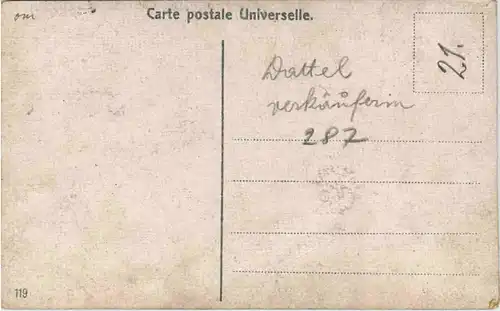 Carte postale Universelle.
21.
Dattel
verkäuferin
287
119